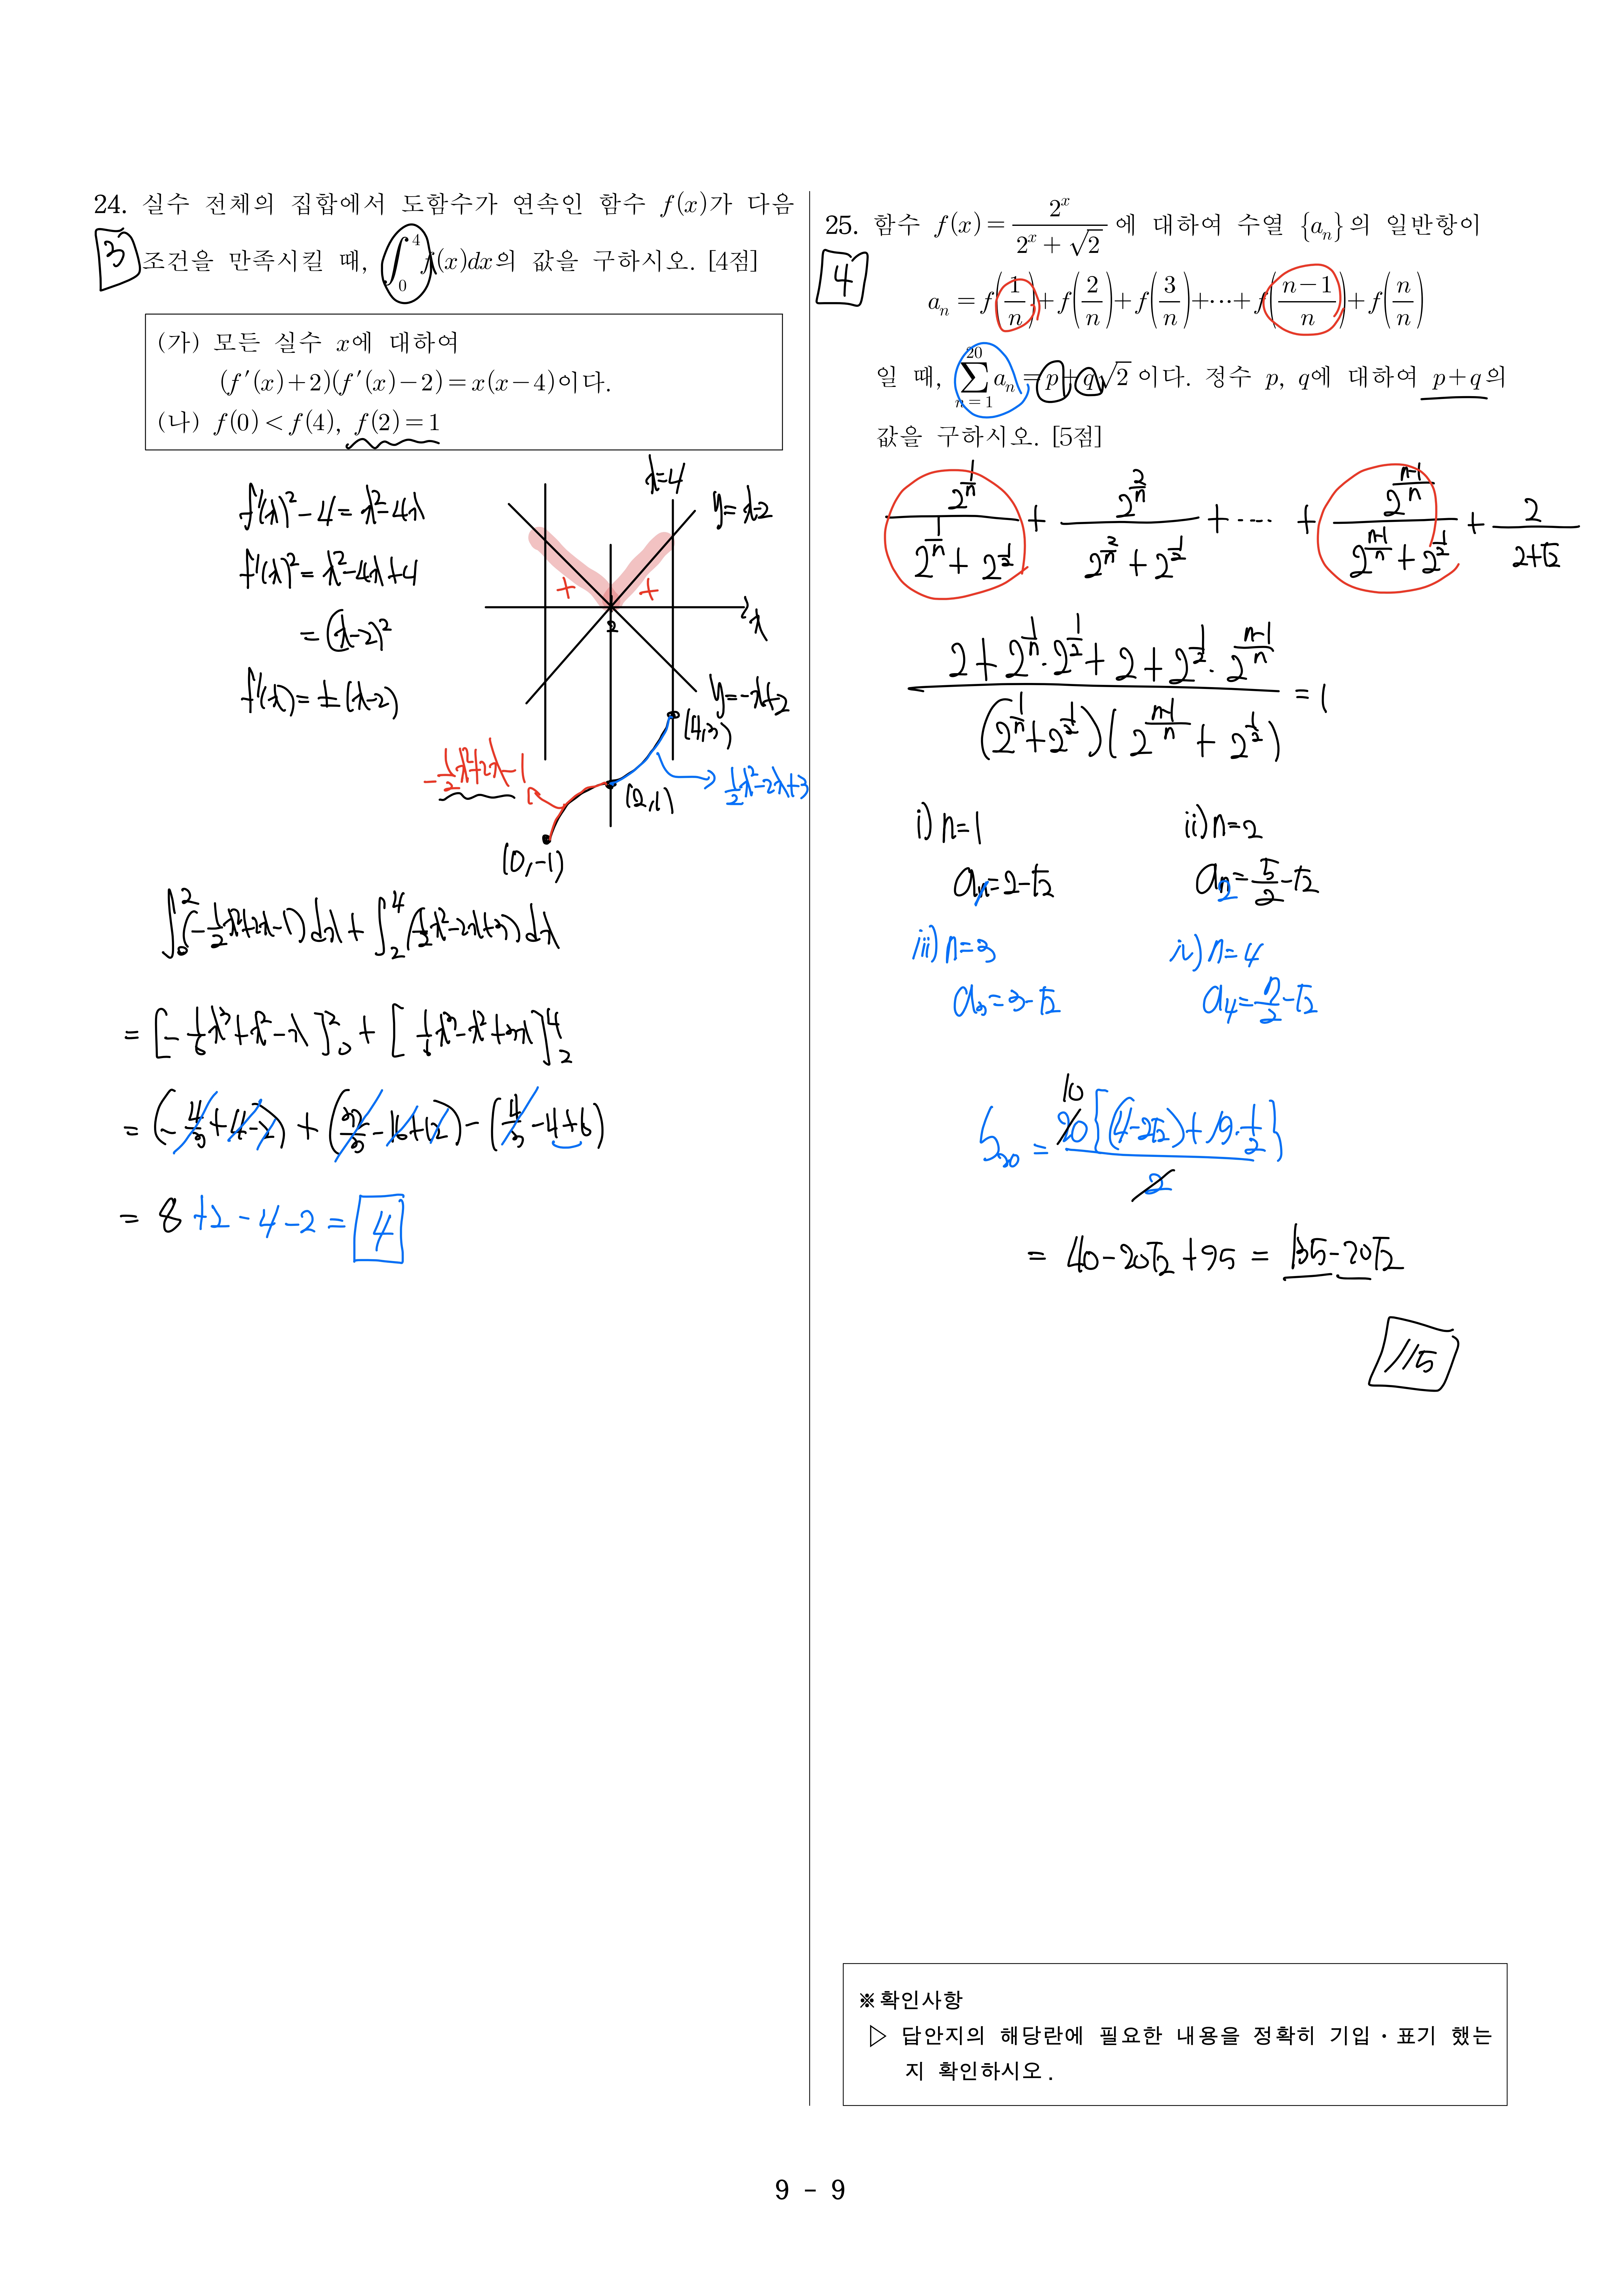 24. 실수 전체의 집합에서 도함수가 연속인 함수 f(x)가 다음
3
조건을 만족시킬 때, ∫₀⁴ f(x)dx의 값을 구하시오. [4점]
(가) 모든 실수 x에 대하여
(f′(x)+2)(f′(x)−2)=x(x−4)이다.
(나) f(0)<f(4), f(2)=1
f'(x)²-4=x²-4x
f'(x)²=x²-4x+4
=(x-2)²
f'(x)=±(x-2)
x=4
y=x-2
+ +
2
x
y=-x+2
(4,3)
-1/2x²+2x-1
(2,1)
1/2x²-2x+3
(0,-1)
∫₀²(-1/2x²+2x-1)dx+∫₂⁴(1/2x²-2x+3)dx
=[-1/6x³+x²-x]₀²+[1/6x³-x²+3x]₂⁴
=(-4/3+4-2)+(32/3-16+12)-(4/3-4+6)
=8+2-4-2=4
25. 함수 f(x)=2^x/(2^x+√2)에 대하여 수열 {aₙ}의 일반항이
4
aₙ=f(1/n)+f(2/n)+f(3/n)+⋯+f((n−1)/n)+f(n/n)
일 때, ∑_{n=1}^{20} aₙ=p+q√2이다. 정수 p, q에 대하여 p+q의
값을 구하시오. [5점]
2^(1/n)/(2^(1/n)+2^(1/2))+2^(2/n)/(2^(2/n)+2^(1/2))+⋯+2^((n-1)/n)/(2^((n-1)/n)+2^(1/2))+2/(2+√2)
(2+2^(1/n)·2^(1/2)+2+2^(1/2)·2^((n-1)/n))/((2^(1/n)+2^(1/2))(2^((n-1)/n)+2^(1/2)))=1
i) n=1 ii) n=2
a₁=2-√2 a₂=5/2-√2
iii) n=3 iv) n=4
a₃=3-√2 a₄=7/2-√2
10
S₂₀=20{(4-2√2)+19·1/2}/2
=40-20√2+95=135-20√2
115
※ 확인사항
▷ 답안지의 해당란에 필요한 내용을 정확히 기입・표기 했는
지 확인하시오.
9 - 9